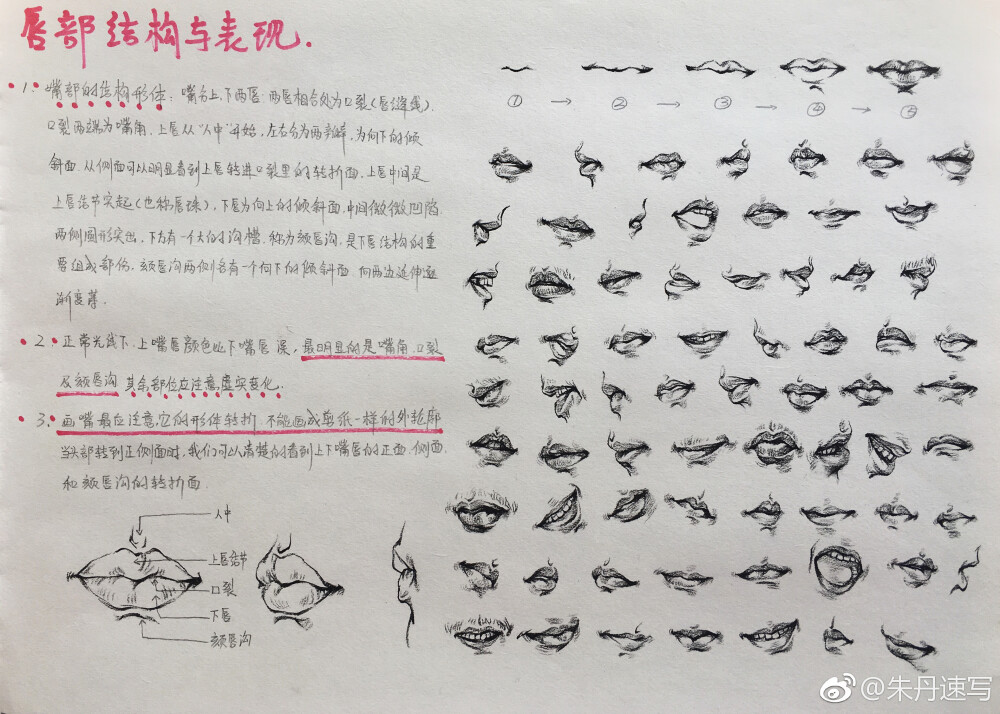 唇部结构与表现.
1. 嘴部的结构形体: 嘴分上.下两唇. 两唇相合处为口裂(唇缝线).
口裂两端为嘴角. 上唇从"人中"开始, 左右分为两瓣, 为向下的倾
斜面. 从侧面可以明显看到上唇转进口裂里的转折面. 上唇中间是
上唇结节突起(也称唇珠), 下唇为向上的倾斜面. 中间微微凹陷.
两侧圆形突出, 下方有一个大的沟槽. 称为颏唇沟. 是下唇结构的重
要组成部份. 颏唇沟两侧各有一个向下的倾斜面. 向两边延伸逐
渐变薄.
2. 正常光线下. 上嘴唇颜色比下嘴唇 深, 最明显的是嘴角.口裂
及颏唇沟 其余部位应注意虚实变化.
3. 画嘴最应注意它的形体转折. 不能画成剪纸一样的外轮廓
当头部转到正侧面时, 我们可以清楚的看到上下嘴唇的正面. 侧面.
和颏唇沟的转折面.
人中
上唇结节
口裂
下唇
颏唇沟
① → ② → ③ → ④ → ⑤
@朱丹速写